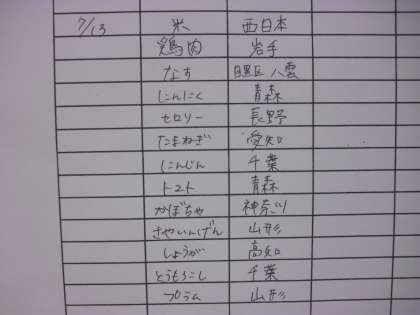 7/13 米 西日本
鶏肉 岩手
なす 目黒区八雲
にんにく 青森
セロリー 長野
たまねぎ 愛知
にんじん 千葉
トマト 青森
かぼちゃ 神奈川
さやいんげん 山形
しょうが 高知
とうもろこし 千葉
プラム 山形